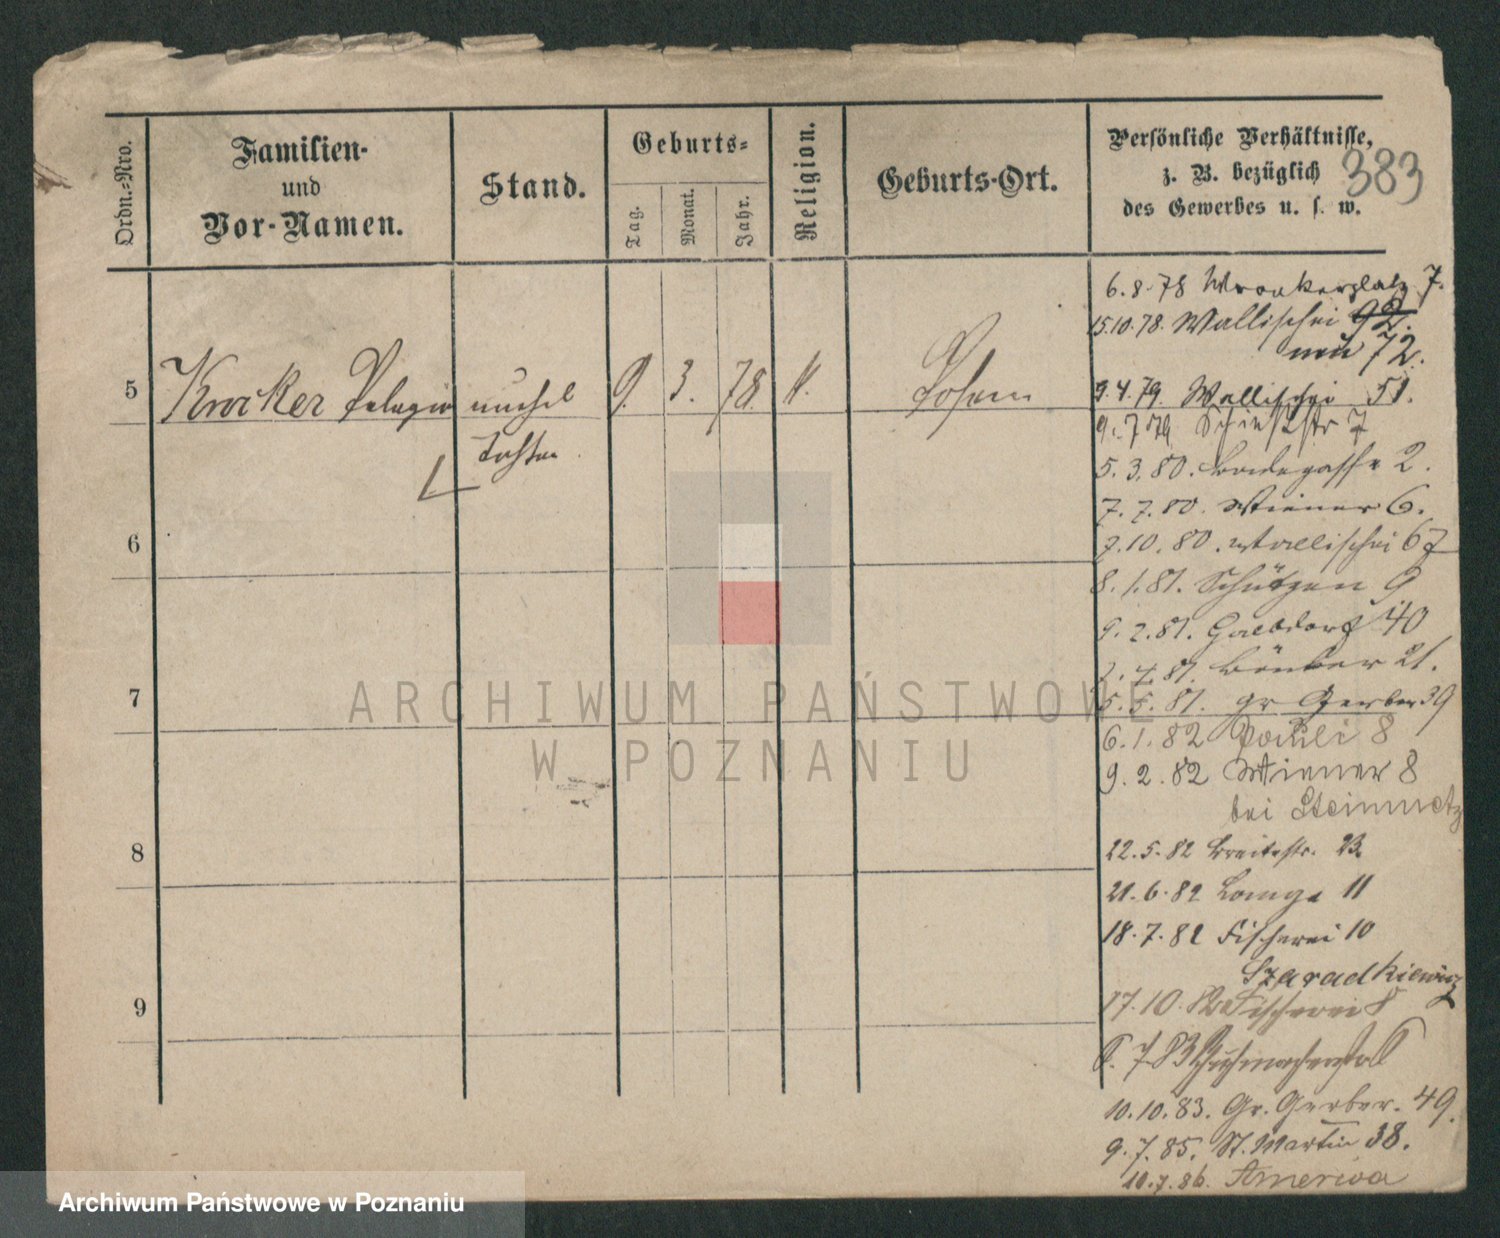 Ordn.-Nro.
Familien-
und
Vor-Namen.
Stand.
Geburts-
Tag.
Monat.
Jahr.
Religion.
Geburts-Ort.
Persönliche Verhältnisse,
z. B. bezüglich
des Gewerbes u. s. w.
383
6.8.78 Wronkerplatz 7.
15.10.78. Wallischei 92.
neu 72.
5
Krocker Pelagia
unehel
Tochter
9. 3. 78.
K.
Posen
9.4.79. Wallischei 51.
9.7.79 Schießstr 7
5.3.80. 2.
7.7.80. Wiener 6.
6
7.10.80. Wallischei 67
8.1.81. Schützen 9
9.2.81. 40
7
2.4.81. 21.
5.5.81. gr Gerber 39
6.1.82 Pauli 8
9.2.82 Wiener 8
bei Steinmetz
8
22.5.82 Breitestr. 23.
21.6.82 Lange 11
18.7.82 Fischerei 10
Szaradkiewicz
9
17.10.82 Fischerei 8
8.7 83
10.10.83. Gr. Gerber. 49.
9.7.85. St. Martin 38.
10.7.86. America
ARCHIWUM PAŃSTWOWE
W POZNANIU
Archiwum Państwowe w Poznaniu